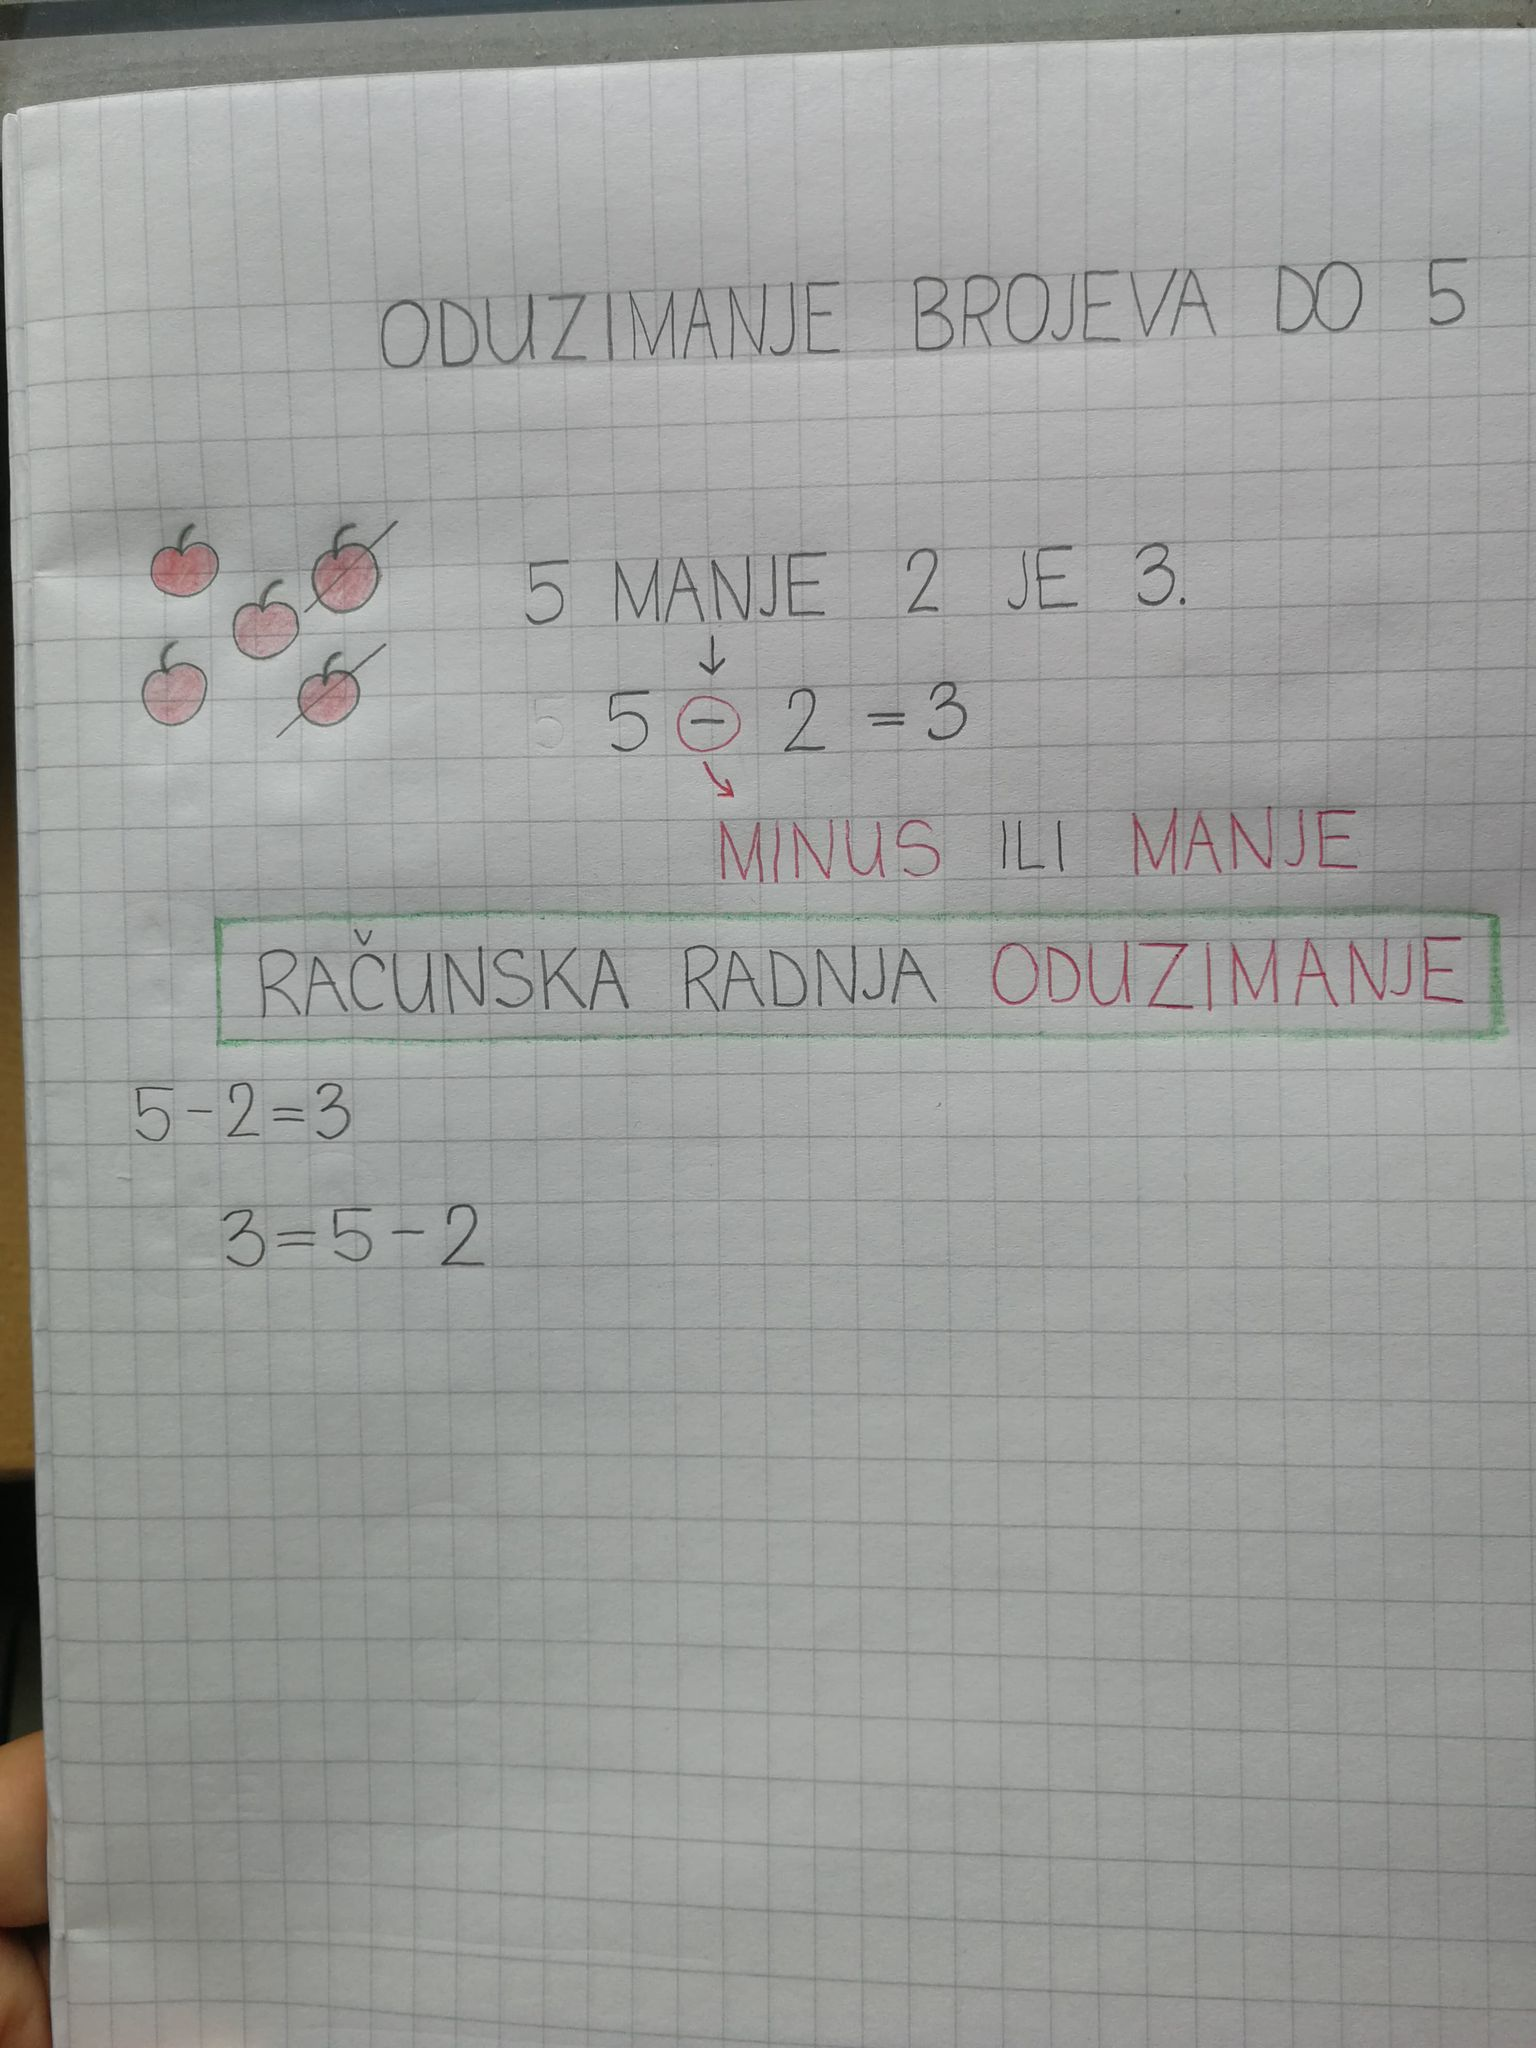 ODUZIMANJE BROJEVA DO 5
5 MANJE 2 JE 3.
↓
5 - 2 = 3
↘
MINUS ILI MANJE
RAČUNSKA RADNJA ODUZIMANJE
5-2=3
3=5-2